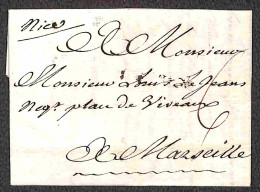 Nice
A Monsieur
Monsieur Louis Le Jeans
Neg.t place de Viveaux
A Marseille